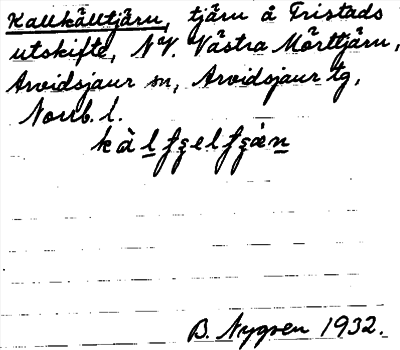 Kallkälltjärn, tjärn å Tristads
utskifte, NV. Västra Mörttjärn,
Arvidsjaur sn, Arvidsjaur tg,
Norrb. l.
B. Nygren 1932.